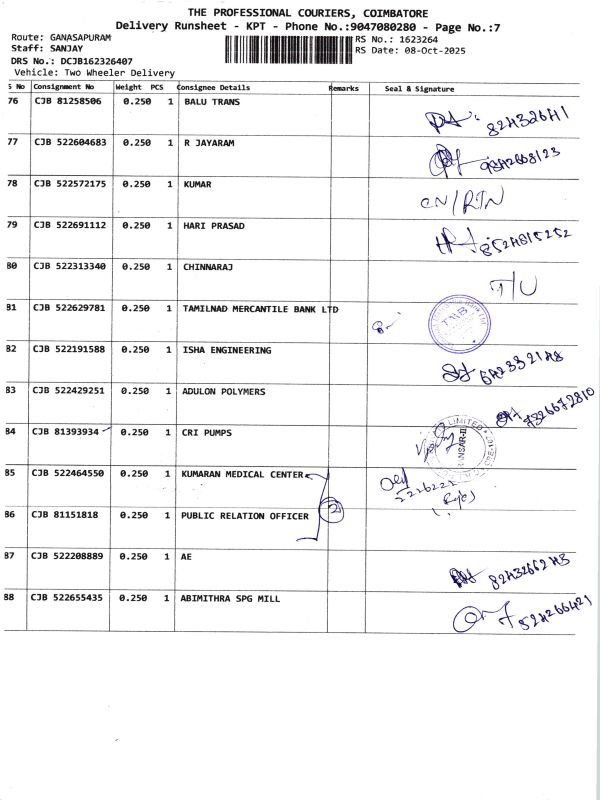 THE PROFESSIONAL COURIERS, COIMBATORE
Delivery Runsheet - KPT - Phone No.:9047080280 - Page No.:7
Route: GANASAPURAM
RS No.: 1623264
Staff: SANJAY
RS Date: 08-Oct-2025
DRS No.: DCJB162326407
Vehicle: Two Wheeler Delivery
S No Consignment No Weight PCS Consignee Details Remarks Seal & Signature
76 CJB 81258506 0.250 1 BALU TRANS
77 CJB 522604683 0.250 1 R JAYARAM
78 CJB 522572175 0.250 1 KUMAR CN/RTN
79 CJB 522691112 0.250 1 HARI PRASAD 8524815252
80 CJB 522313340 0.250 1 CHINNARAJ T/U
81 CJB 522629781 0.250 1 TAMILNAD MERCANTILE BANK LTD TMB
82 CJB 522191588 0.250 1 ISHA ENGINEERING
83 CJB 522429251 0.250 1 ADULON POLYMERS 7326672810
84 CJB 81393934 0.250 1 CRI PUMPS LIMITED
85 CJB 522464550 0.250 1 KUMARAN MEDICAL CENTER
86 CJB 81151818 0.250 1 PUBLIC RELATION OFFICER 2
87 CJB 522208889 0.250 1 AE
88 CJB 522655435 0.250 1 ABIMITHRA SPG MILL